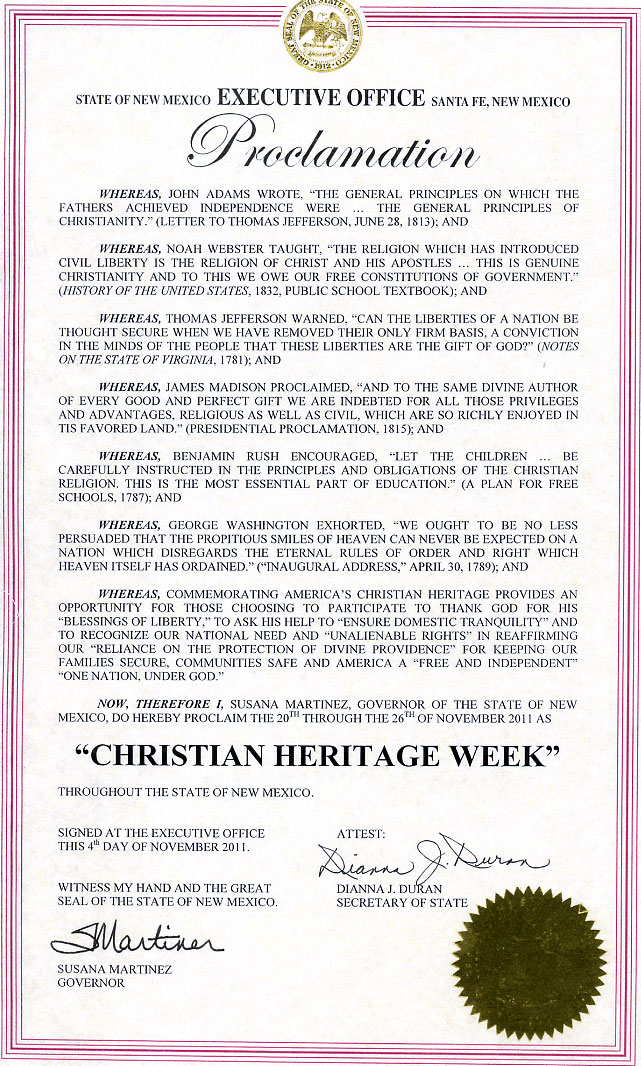 GREAT SEAL OF THE STATE OF NEW MEXICO
· 1912 ·
STATE OF NEW MEXICO EXECUTIVE OFFICE SANTA FE, NEW MEXICO
Proclamation
WHEREAS, JOHN ADAMS WROTE, “THE GENERAL PRINCIPLES ON WHICH THE
FATHERS ACHIEVED INDEPENDENCE WERE … THE GENERAL PRINCIPLES OF
CHRISTIANITY.” (LETTER TO THOMAS JEFFERSON, JUNE 28, 1813); AND
WHEREAS, NOAH WEBSTER TAUGHT, “THE RELIGION WHICH HAS INTRODUCED
CIVIL LIBERTY IS THE RELIGION OF CHRIST AND HIS APOSTLES … THIS IS GENUINE
CHRISTIANITY AND TO THIS WE OWE OUR FREE CONSTITUTIONS OF GOVERNMENT.”
(HISTORY OF THE UNITED STATES, 1832, PUBLIC SCHOOL TEXTBOOK); AND
WHEREAS, THOMAS JEFFERSON WARNED, “CAN THE LIBERTIES OF A NATION BE
THOUGHT SECURE WHEN WE HAVE REMOVED THEIR ONLY FIRM BASIS, A CONVICTION
IN THE MINDS OF THE PEOPLE THAT THESE LIBERTIES ARE THE GIFT OF GOD?” (NOTES
ON THE STATE OF VIRGINIA, 1781); AND
WHEREAS, JAMES MADISON PROCLAIMED, “AND TO THE SAME DIVINE AUTHOR
OF EVERY GOOD AND PERFECT GIFT WE ARE INDEBTED FOR ALL THOSE PRIVILEGES
AND ADVANTAGES, RELIGIOUS AS WELL AS CIVIL, WHICH ARE SO RICHLY ENJOYED IN
TIS FAVORED LAND.” (PRESIDENTIAL PROCLAMATION, 1815); AND
WHEREAS, BENJAMIN RUSH ENCOURAGED, “LET THE CHILDREN … BE
CAREFULLY INSTRUCTED IN THE PRINCIPLES AND OBLIGATIONS OF THE CHRISTIAN
RELIGION. THIS IS THE MOST ESSENTIAL PART OF EDUCATION.” (A PLAN FOR FREE
SCHOOLS, 1787); AND
WHEREAS, GEORGE WASHINGTON EXHORTED, “WE OUGHT TO BE NO LESS
PERSUADED THAT THE PROPITIOUS SMILES OF HEAVEN CAN NEVER BE EXPECTED ON A
NATION WHICH DISREGARDS THE ETERNAL RULES OF ORDER AND RIGHT WHICH
HEAVEN ITSELF HAS ORDAINED.” (“INAUGURAL ADDRESS,” APRIL 30, 1789); AND
WHEREAS, COMMEMORATING AMERICA’S CHRISTIAN HERITAGE PROVIDES AN
OPPORTUNITY FOR THOSE CHOOSING TO PARTICIPATE TO THANK GOD FOR HIS
“BLESSINGS OF LIBERTY,” TO ASK HIS HELP TO “ENSURE DOMESTIC TRANQUILITY” AND
TO RECOGNIZE OUR NATIONAL NEED AND “UNALIENABLE RIGHTS” IN REAFFIRMING
OUR “RELIANCE ON THE PROTECTION OF DIVINE PROVIDENCE” FOR KEEPING OUR
FAMILIES SECURE, COMMUNITIES SAFE AND AMERICA A “FREE AND INDEPENDENT”
“ONE NATION, UNDER GOD.”
NOW, THEREFORE I, SUSANA MARTINEZ, GOVERNOR OF THE STATE OF NEW
MEXICO, DO HEREBY PROCLAIM THE 20TH THROUGH THE 26TH OF NOVEMBER 2011 AS
“CHRISTIAN HERITAGE WEEK”
THROUGHOUT THE STATE OF NEW MEXICO.
SIGNED AT THE EXECUTIVE OFFICE
THIS 4th DAY OF NOVEMBER 2011.
WITNESS MY HAND AND THE GREAT
SEAL OF THE STATE OF NEW MEXICO.
SMartinez
SUSANA MARTINEZ
GOVERNOR
ATTEST:
Dianna J. Duran
DIANNA J. DURAN
SECRETARY OF STATE